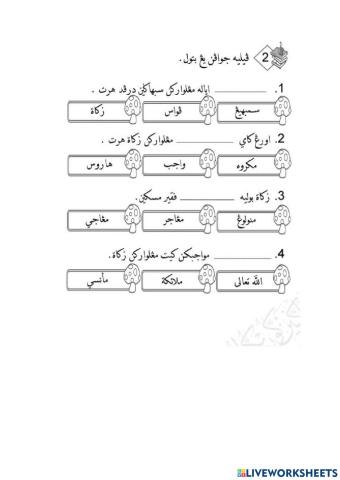 2 ڤيليه جواڤن يڠ بتول.
1. ________ اياله مڠلوارکن سبهاݢين درڤد هرت.
سمبهيڠ ڤواس زکاة
2. اورڠ کاي ________ مڠلوارکن زکاة هرت.
مکروه واجب هاروس
3. زکاة بوليه ________ فقير مسکين.
منولوڠ مڠاجر مڠاجي
4. ________ مواجبکن کيت مڠلوارکن زکاة.
الله تعالى ملائكة مأنسي
LIVEWORKSHEETS